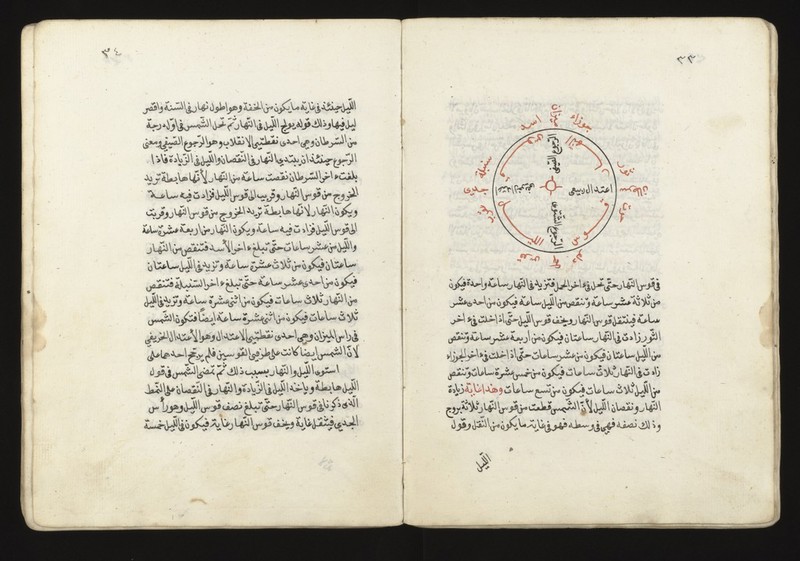 ٣٣
جوزاء
ميزان
اسد
ثور
سنبلة
حوت
الرجوع الصيفي
اعتدال ربيعي
الرجوع الشتوي
في قوس النهار حتى تحل في اخر الحمل فتزيد في النهار ساعة واحدة فيكون
من ثلاثة عشر ساعة وتنقص من الليل ساعة فيكون من احدى عشر
ساعة فينتقل قوس النهار ويخف قوس الليل حتى اذا حلت في اخر
الثور زادت في النهار ساعتان فيكون من اربعة عشر ساعة وتنقص
من الليل ساعتان فيكون من عشر ساعات حتى اذا حلت في اخر الجوزاء
زادت في النهار ثلاث ساعات فيكون من خمس عشرة ساعات وتنقص
من الليل ثلاث ساعات فيكون من تسع ساعات وهذا نهاية زيادة
النهار ونقصان الليل لأن الشمس قطعت من قوس النهار ثلاثة بروج
وذلك نصفه فهي في وسطه فهو في غاية ما يكون من الثقل وقول
الليل
٣٤
الليل حينئذ في غاية ما يكون من الخفة وهو اطول نهار في السنة واقصر
ليل فيها وذلك قوله يولج الليل في النهار ثم تحل الشمس في اول درجة
من السرطان وهي احدى نقطتي الانقلاب وهو الرجوع الصيفي ومعنى
الرجوع حينئذ ان يبتدي النهار في النقصان والليل في الزيادة فاذا
بلغت اخر السرطان نقصت ساعة من النهار لأنها هابطة تريد
الخروج من قوس النهار وقريب الى قوس الليل فزادت فيه ساعة
ويكون النهار لانها هابطة تريد الخروج من قوس النهار وقربت
الى قوس الليل فزادت فيه ساعة ويكون النهار من اربعة عشرة ساعة
والليل من عشر ساعات حتى تبلغ اخر الأسد فتنقص من النهار
ساعتان فيكون من ثلاث عشرة ساعة وتزيد في الليل ساعتان
فيكون من احدى عشر ساعة حتى تبلغ اخر السنبلة فتنقص
من النهار ثلاث ساعات فيكون من اثني عشرة ساعة وتزيد في الليل
ثلاث ساعات فيكون من اثني عشرة ساعة ايضا فتكون الشمس
في راس الميزان وهي احدى نقطتي الاعتدال وهو الأعتدال الخريفي
لأن الشمس ايضا كانت على طرفي القوسين فلم يرجح احدهما على
استوى الليل والنهار بسبب ذلك ثم تمضي الشمس في قول
الليل هابطة وياخذ الليل في الزيادة والنهار في النقصان على النمط
الذي ذكرنا في قوس النهار حتى تبلغ نصف قوس الليل وهو رأس
الجدي فيثقل غاية ويخف قوس النهار غاية فيكون في الليل خمسة